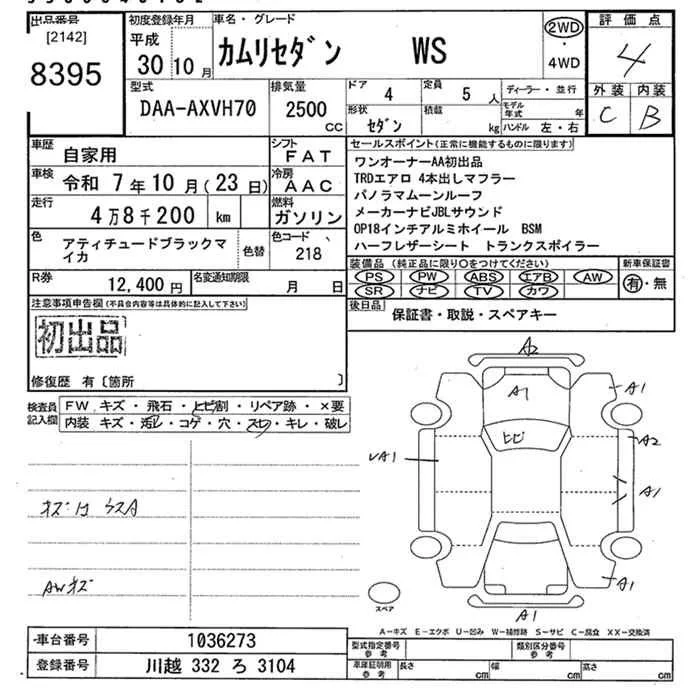 出品番号
[2142]
8395
初度登録年月
平成
30 10 月
車名・グレード
カムリセダン WS
2WD
・
4WD
評価点
4
外装 内装
C B
型式
DAA-AXVH70
排気量
2500
CC
ドア
4
定員
5 人
形状
セダン
積載
kg
ディーラー・並行
モデル年式 年
ハンドル 左・右
車歴
自家用
シフト
FAT
車検
令和 7年 10月(23日)
冷房
AAC
走行
4万8千200 km
燃料
ガソリン
色
アティチュードブラックマイカ
色替
色コード
218
R券
12,400 円
名変通知期限
月 日
セールスポイント(正常に機能するものに限ります)
ワンオーナーAA初出品
TRDエアロ 4本出しマフラー
パノラマムーンルーフ
メーカーナビJBLサウンド
OP18インチアルミホイール BSM
ハーフレザーシート トランクスポイラー
装備品 (純正品に限り○をつけてください)
PS PW ABS エアB AW
SR ナビ TV カワ
新車保証書
有・無
後日品
保証書・取説・スペアキー
注意事項申告欄(不具合内容等は具体的に記入して下さい)
初出品
修復歴 有〔箇所 〕
検査員記入欄
FW キズ・飛石・ヒビ割・リペア跡・×要
内装 キズ・汚レ・コゲ・穴・スレ・キレ・破レ
AWキズ
A2
A1
A1
ヒビ
A2
A1
A1
A1
スペア
A-キズ E-エクボ U-凹み W-補修跡 S-サビ C-腐食 XX-交換済
車台番号
1036273
登録番号
川越 332 ろ 3104
型式指定番号
参考
類別区分番号
参考
車庫証明用
参考
長さ cm
幅 cm
高さ cm